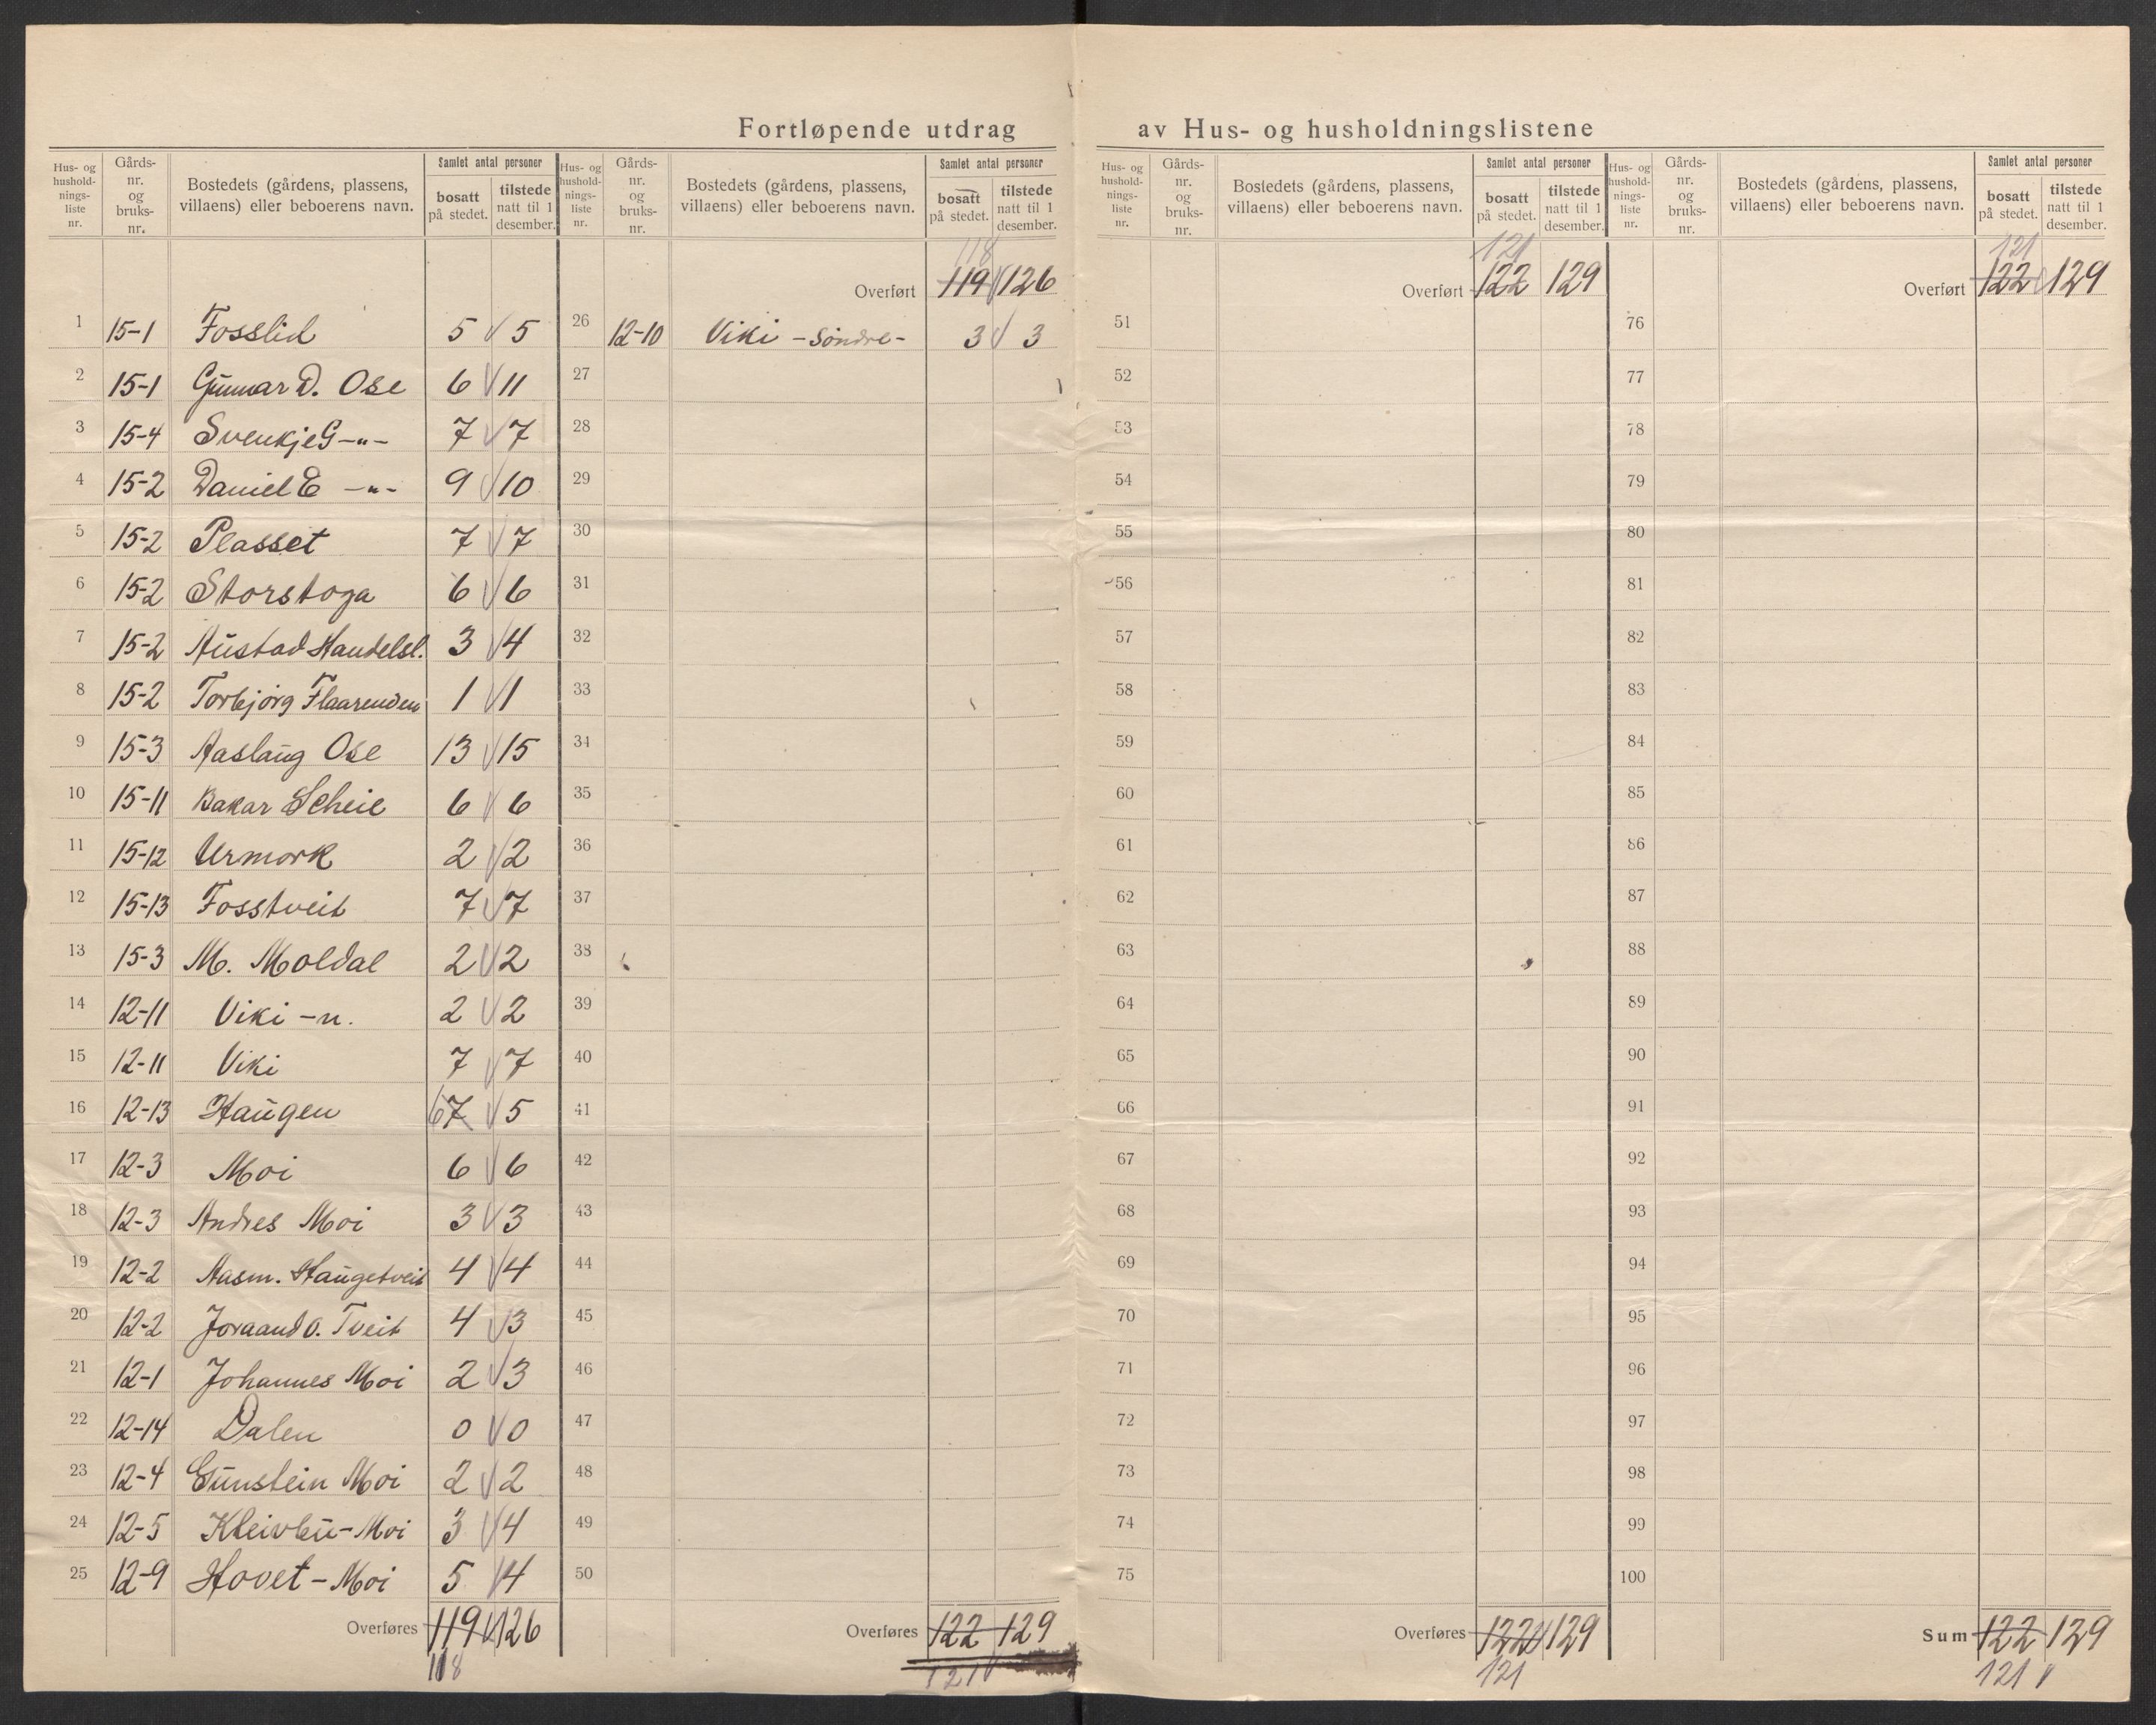 Fortløpende utdrag av Hus- og husholdningslistene
Hus- og hushold-nings-liste nr. Gårds-nr. og bruks-nr. Bostedets (gårdens, plassens, villaens) eller beboerens navn. Samlet antal personer bosatt på stedet. tilstede natt til 1 desember.
1 15-1 Fosslid 5 5
2 15-1 Gunnar D. Ose 6 11
3 15-4 Svenkje G -"- 7 7
4 15-2 Daniel E -"- 9 10
5 15-2 Plasset 7 7
6 15-2 Storstoga 6 6
7 15-2 Austad Handelsl. 3 4
8 15-2 Torbjörg Flaarenden 1 1
9 15-3 Aaslaug Ose 13 15
10 15-11 Bakar Scheie 6 6
11 15-12 Urmork 2 2
12 15-13 Fosstveit 7 7
13 15-3 M. Moldal 2 2
14 12-11 Viki -n. 2 2
15 12-11 Viki 7 7
16 12-13 Haugen 6 7 5
17 12-3 Moi 6 6
18 12-3 Andres Moi 3 3
19 12-2 Aasm. Haugetveit 4 4
20 12-2 Joraand O. Tveit 4 3
21 12-1 Johannes Moi 2 3
22 12-14 Dalen 0 0
23 12-4 Gunstein Moi 2 2
24 12-5 Kleivbu-Moi 3 4
25 12-9 Hovet-Moi 5 4
Overføres 119 126
118
Hus- og hushold-nings-liste nr. Gårds-nr. og bruks-nr. Bostedets (gårdens, plassens, villaens) eller beboerens navn. Samlet antal personer bosatt på stedet. tilstede natt til 1 desember.
118
Overført 119 126
26 12-10 Viki -Söndre- 3 3
27
28
29
30
31
32
33
34
35
36
37
38
39
40
41
42
43
44
45
46
47
48
49
50
Overføres 122 129
121
Hus- og hushold-nings-liste nr. Gårds-nr. og bruks-nr. Bostedets (gårdens, plassens, villaens) eller beboerens navn. Samlet antal personer bosatt på stedet. tilstede natt til 1 desember.
121
Overført 122 129
51
52
53
54
55
56
57
58
59
60
61
62
63
64
65
66
67
68
69
70
71
72
73
74
75
Overføres 122 129
121
Hus- og hushold-nings-liste nr. Gårds-nr. og bruks-nr. Bostedets (gårdens, plassens, villaens) eller beboerens navn. Samlet antal personer bosatt på stedet. tilstede natt til 1 desember.
121
Overført 122 129
76
77
78
79
80
81
82
83
84
85
86
87
88
89
90
91
92
93
94
95
96
97
98
99
100
Sum 122 129
121